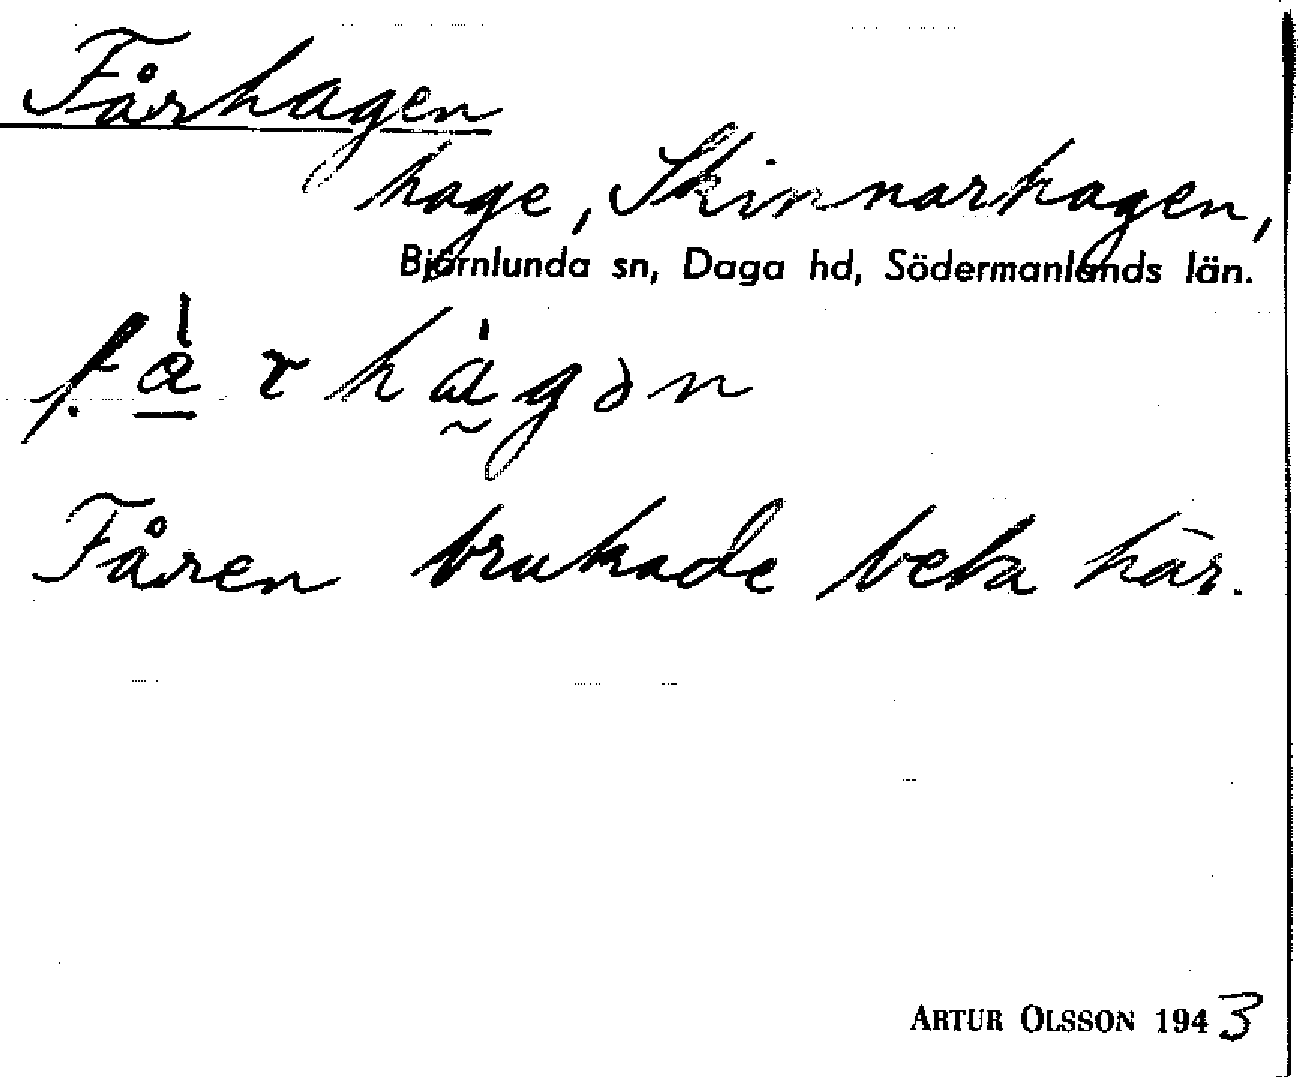 Fårhagen
hage, Skinnarhagen,
Björnlunda sn, Daga hd, Södermanlands län.
Fåren brukade beta här.
ARTUR OLSSON 1943